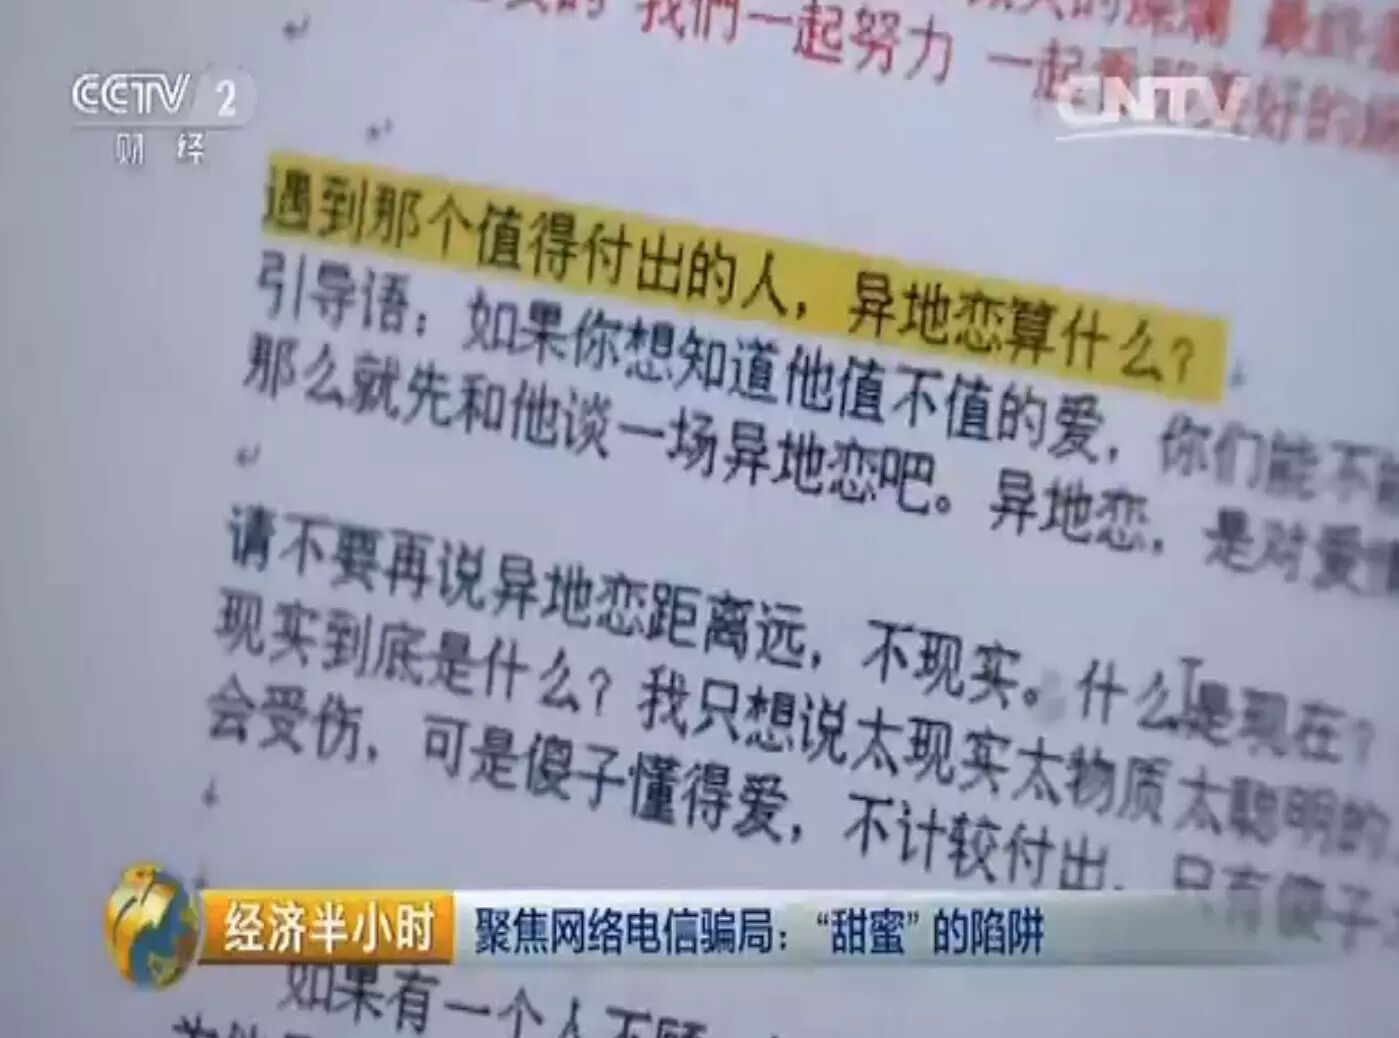 我們一起努力 一起
CCTV 2
财经
CNTV
好的
遇到那个值得付出的人，异地恋算什么？
引导语：如果你想知道他值不值的爱，你们能不能
那么就先和他谈一场异地恋吧。异地恋，是对爱情
请不要再说异地恋距离远，不现实。什么是现在？
现实到底是什么？我只想说太现实太物质太聪明的
会受伤，可是傻子懂得爱，不计较付出，只有傻子
经济半小时
聚焦网络电信骗局：“甜蜜”的陷阱
如果有一个人不顾